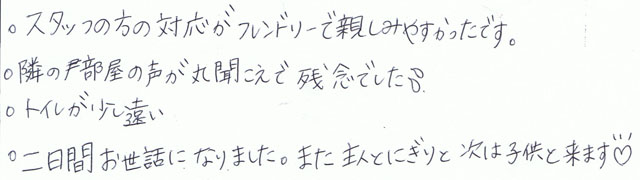 ○ スタッフの方の対応がフレンドリーで親しみやすかったです。
○ 隣の部屋の声が丸聞こえで残念でした
○ トイレが少し遠い
○ 二日間お世話になりました。また主人とにぎりと次は子供と来ます♡